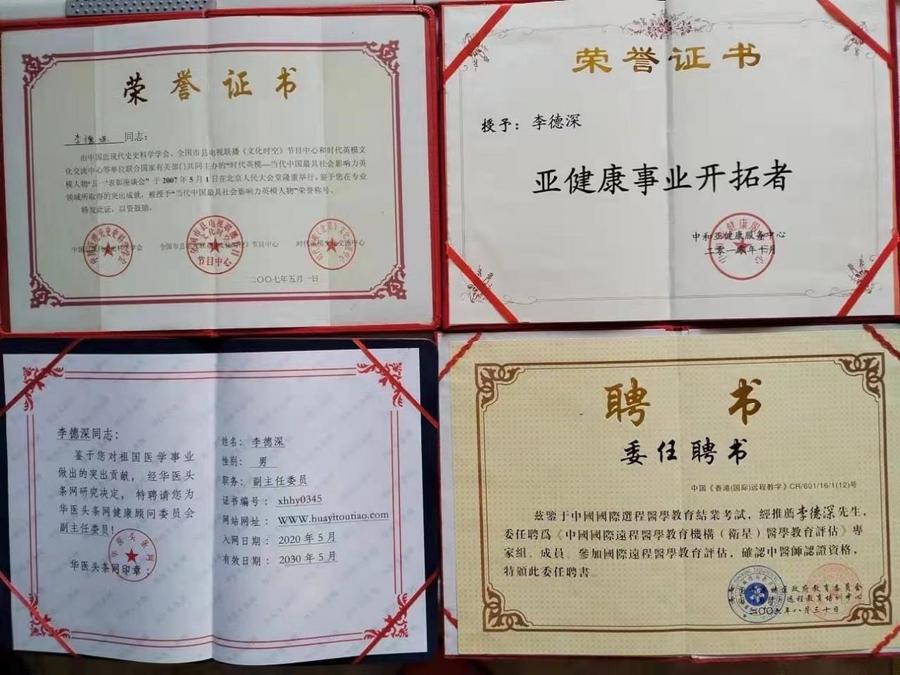 荣誉证书
李德深 同志：
由中国近现代史史料学学会、全国市县电视联播《文化时空》节目中心和时代英模
文化交流中心等单位联合国家有关部门共同主办的“时代英模—当代中国最具社会影响力英
模人物‘五一’表彰座谈会”于2007年5月1日在北京人民大会堂隆重举行。鉴于您在专业
领域所取得的突出成就，被授予“当代中国最具社会影响力英模人物”荣誉称号。
特发此证，以资鼓励。
节目中心
二〇〇七年五月一日
荣誉证书
授予：李德深
亚健康事业开拓者
中和亚健康服务中心
李德深同志：
鉴于您对祖国医学事业
做出的突出贡献，经华医头
条网研究决定，特聘请您为
华医头条网健康顾问委员会
副主任委员！
华医头条网印章：
姓名：李德深
性别：男
职务：副主任委员
证书编号：xhhy0345
网站网址：WWW.huayitoutiao.com
入网日期：2020年5月
有效日期：2030年5月
聘书
委任聘书
中国《香港(国际)远程教字》CR/601/16/1(12)号
兹鉴于中國國際遠程醫學教育結業考試，經推薦李德深先生，
委任聘爲《中國國際遠程醫學教育機構（衛星）醫學教育評估》專
家組、成員。參加國際遠程醫學教育評估，確認中醫師認證資格，
特頒此委任聘書。